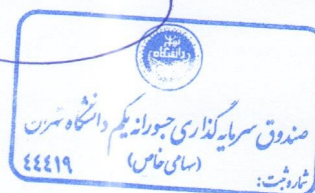 دانشگاه
تهران
صندوق سرمایه گذاری جسورانه یکم دانشگاه تهران
(سهامی خاص)
شماره ثبت: ۴۴۴۱۹